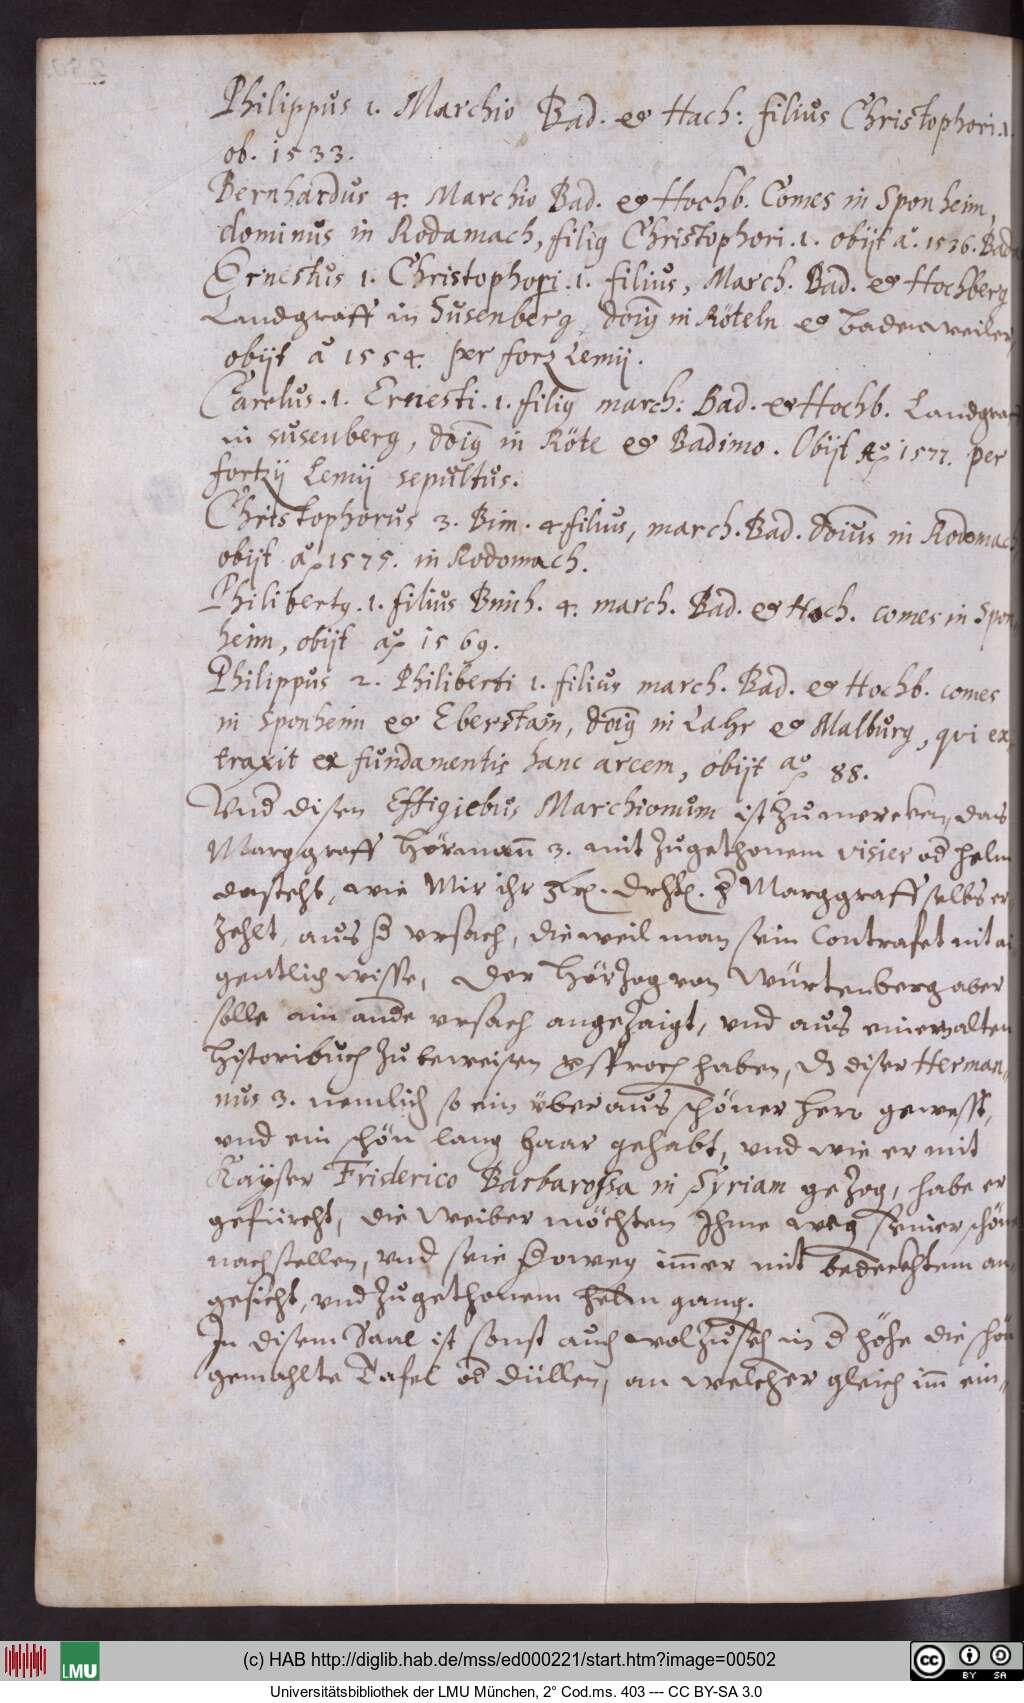 Philippus 1. Marchio Bad. et Hach: filius Christophori .1.
ob. 1533.
Bernhardus 4. Marchio Bad. et Hochb. Comes in Sponheim,
dominus in Rodamach, filiꝰ Christophori .1. obijt aͦ. 1536. Bad
Ernestus 1. Christophori .1. filius, March. Bad. et Hochberg
Landgraff in Susenberg, dom̄ꝰ in Röteln et badenweiler,
obijt aͦ 1554. per forz Lemij.
Carolus .1. Ernesti .1. filiꝰ march: Bad. et Hochb. Landgraff
in susenberg, doīꝰ in Röte et Badimo. Obijt Aͦ 1577. per
fortzij Lemij sepultus.
Christophorus 3. Birn. 4 filius, march. Bad. doīus in Rodomach
obijt aͦ 1575. in Rodomach.
Philibertꝰ .1. filius Bnih. 4. march. Bad. et Hoch. comes in Spon,
heim, obijt aͦ 1569.
Philippus 2. Philiberti 1. filius march. Bad. et Hochb. comes
in Sponheim et Eberstain, doīꝰ in Lahr et Malburg, qui ex,
traxit ex fundamentis hanc arcem, obijt aͦ 88.
Vnd disen Effigiebus Marchionum ist zu mercken, das
Marggraff Hörmann 3. mit zugethonem visier od helm
dasteht, wie Mir ihr der Marggraff selbs er,
zehlt, aus vrsach, dieweil man sein Contrafet nit ai
gentlich wisse, der Hörzog von Würtenberg aber
solle ain ande vrsach angezaigt, vnd aus einem alten
historibuch zu beweisen vsproch haben, dz diser Herman,
nus 3. nemlich so ein überaus schöner herr gewesst,
vnd ein schön lang haar gehabt, vnd wie er mit
Kayser Friderico Barbarossa in Syriam gezog, habe er
gefürcht, die Weiber möchten Ihme weg seiner schöne
nachstellen, vnd seie immer mit bedecktem an,
gesicht, vnd zugethonem helm gang.
In disem Saal ist sonst auch wol zusech in d höhe die schön
gemahlte Tafel od düllen, an welcher gleich im ein,
(c) HAB http://diglib.hab.de/mss/ed000221/start.htm?image=00502
LMU
cc BY SA
Universitätsbibliothek der LMU München, 2° Cod.ms. 403 --- CC BY-SA 3.0